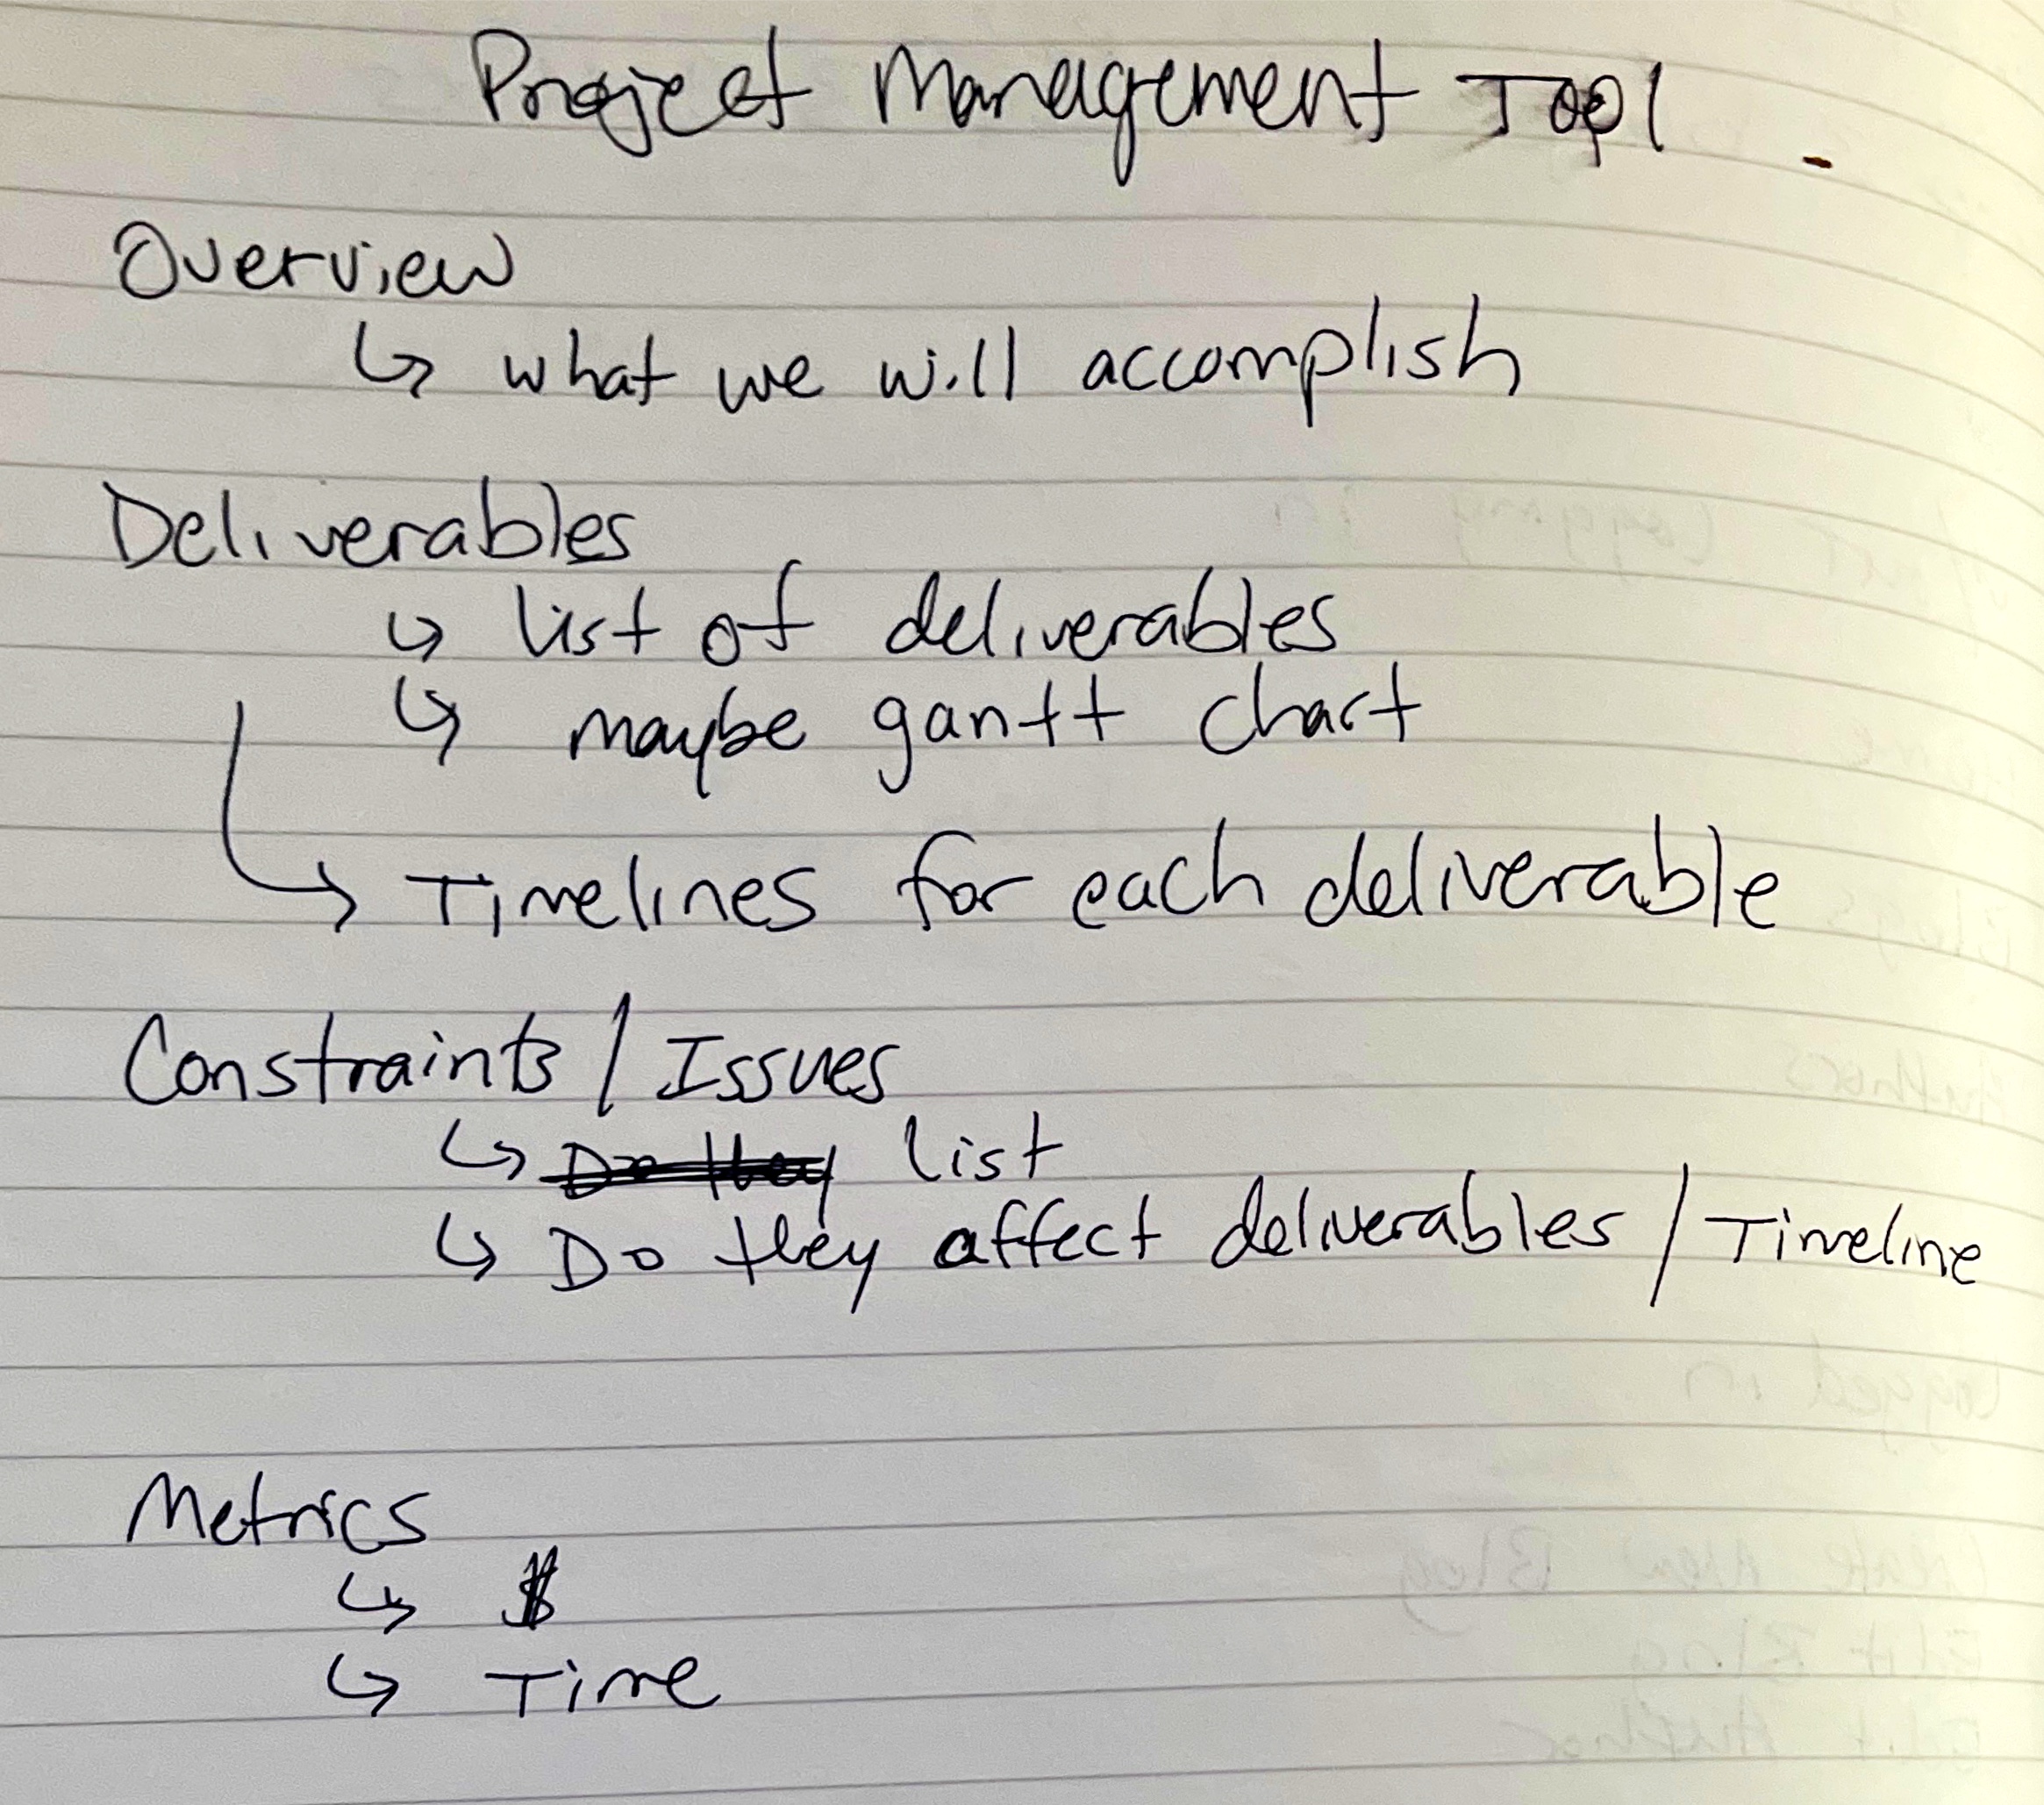 Project Management Tool
Overview
↳ what we will accomplish
Deliverables
↳ list of deliverables
↳ maybe gantt chart
↳ Timelines for each deliverable
Constraints / Issues
↳ Do they list
↳ Do they affect deliverables / Timeline
Metrics
↳ $
↳ Time